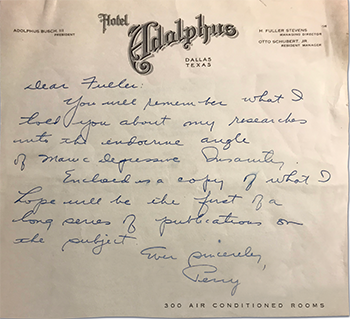 ADOLPHUS BUSCH III
PRESIDENT
Hotel
Adolphus
DALLAS
TEXAS
H. FULLER STEVENS
MANAGING DIRECTOR
OTTO SCHUBERT, JR.
RESIDENT MANAGER
Dear Fuller:
You will remember what I
told you about my researches
into the endocrine angle
of Manic depressive Insanity.
Enclosed is a copy of what I
hope will be the first of a
long series of publications on
the subject
Ever sincerely,
Perry
300 AIR CONDITIONED ROOMS